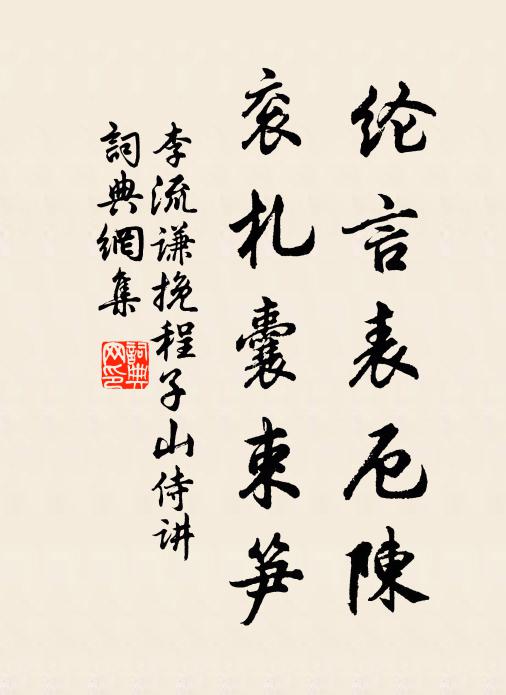 纶言表厄陳
衮札囊束笋
李流谦挽程子山侍讲
詞典網集
詞典網印